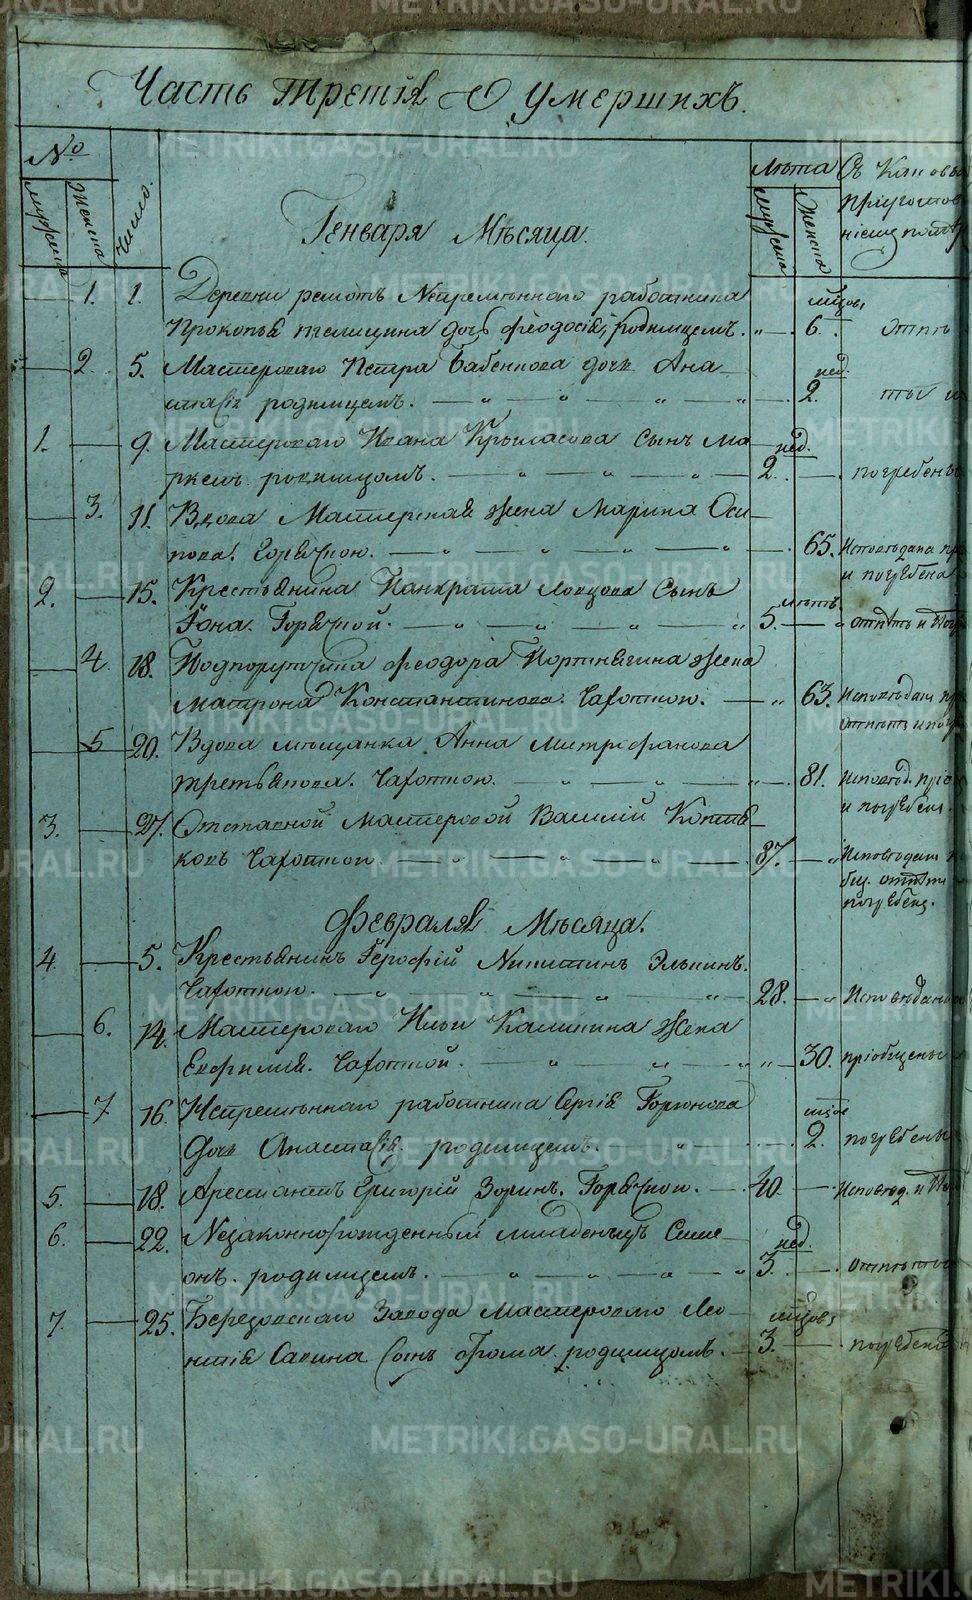 Часть третія О умершихъ.
№
мужска
женска
Число.
Генваря Мѣсяца.
лѣта
мужска
женска
Съ Каковы
пріугот
1. 1. Деревни Непремѣннаго работника мѣсцов.
Прокопья дочь Феодосія, родимцемъ. „ 6. отпѣт
2. 5. Мастероваго Петра Бабенкова дочь Ана нед.
стасія родимцемъ. „ „ „ „ 2.
1. 9. Мастероваго Ивана Крыласова сынъ Ма нед.
ркелъ родимцомъ. „ „ „ 2. погребенъ
3. 11. Вдова Мастерская жена Марина Оси
пова. горячкою. „ „ „ „ 65. Исповѣдана
и погребена
2. 15. Крестьянина Панкрата Сынъ лѣтъ
Іона. Горячкой. „ „ „ „ 5. „ отпѣтъ и
4. 18. Подпорутчика Феодора Портнягина жена
Матрона Константинова. Чахоткою. „ 63. Исповѣдана
отпѣта и погр
5 20. Вдова мѣщанка Анна Митрофанова
третьякова. Чахоткою. „ „ „ 81. Исповѣд. пріо
и погребена.
3. 27. Отставной Мастеровой Василій Котѣ
ковъ Чахоткою. „ „ „ „ 87. „ Исповѣдан
отпѣтъ
погребенъ.
Февраля Мѣсяца.
4. 5. Крестьянинъ Герофій Никитинъ Элькинъ.
Чахоткою. „ „ „ „ 28. „ Исповѣданъ
6. 14. Мастероваго Ильи Калинина жена
Евфимія. Чахоткой. „ „ „ „ 30. пріобщены
7. 16. Непремѣннаго работника Сергія Горюнова мѣсцов
дочь Анастасія. родимцемъ. „ 2. погребены
5. 18. Арестантъ Григорій Зоринъ. Горячкою. 40. Исповѣд. и
6. 22. Незаконнорожденный младенецъ Симе нед.
онъ. родимцемъ. „ „ „ „ 3. отпѣты
7. 25. Березовскаго Завода Мастероваго Лео мѣсцов.
нтія Савина сынъ Фома родимцомъ. 3. погребены
METRIKI.GASO-URAL.RU